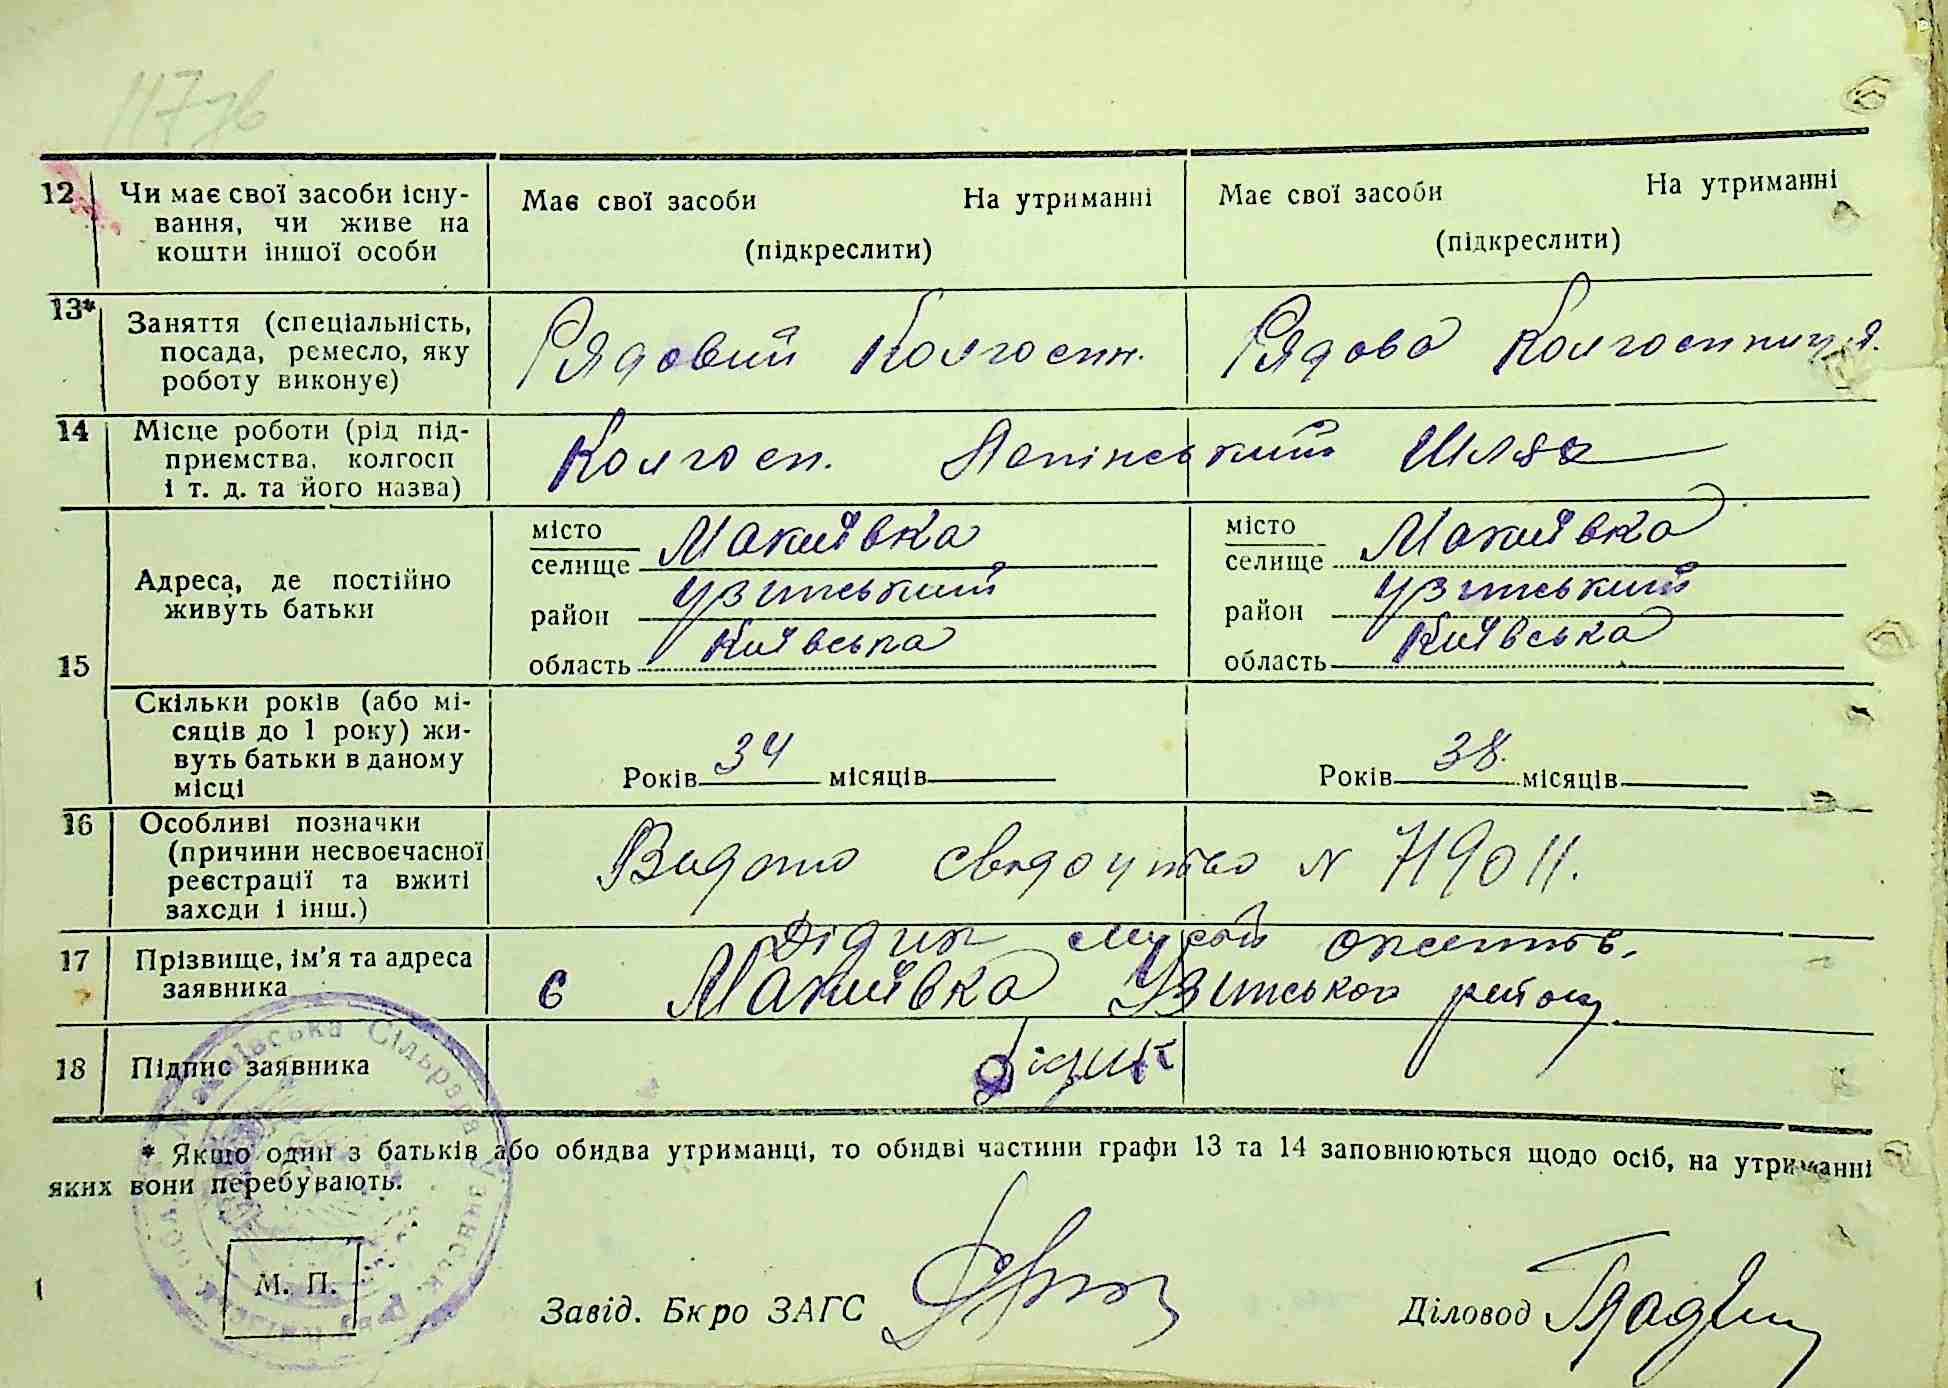 12 Чи має свої засоби існу-
вання, чи живе на
кошти іншої особи
Має свої засоби На утриманні
(підкреслити)
Має свої засоби На утриманні
(підкреслити)
13* Заняття (спеціальність,
посада, ремесло, яку
роботу виконує)
Рядовий Колгоспн.
Рядова Колгоспниця.
14 Місце роботи (рід під-
приємства, колгосп
і т. д. та його назва)
Колгосп. Ленінський Шлях
15 Адреса, де постійно
живуть батьки
місто
селище Макиївка
район Узинський
область Київська
місто
селище Макиївка
район Узинський
область Київська
Скільки років (або мі-
сяців до 1 року) жи-
вуть батьки в даному
місці
Років 34 місяців
Років 38. місяців
16 Особливі позначки
(причини несвоєчасної
реєстрації та вжиті
заходи і інш.)
Видано свидоцтво N 719011.
17 Прізвище, ім'я та адреса
заявника
Дідик
с Макиївка Узинського району
18 Підпис заявника
Дідик
* Якщо один з батьків або обидва утриманці, то обидві частини графи 13 та 14 заповнюються щодо осіб, на утриманні
яких вони перебувають.
М. П.
Завід. Бюро ЗАГС
Діловод